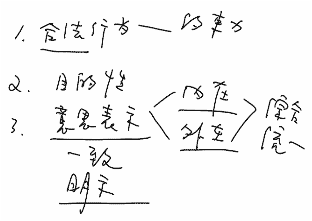 1. 合法行为 — 的事实
2. 目的性
3. 意思表示 内在 外在 综合统一
一致
明示